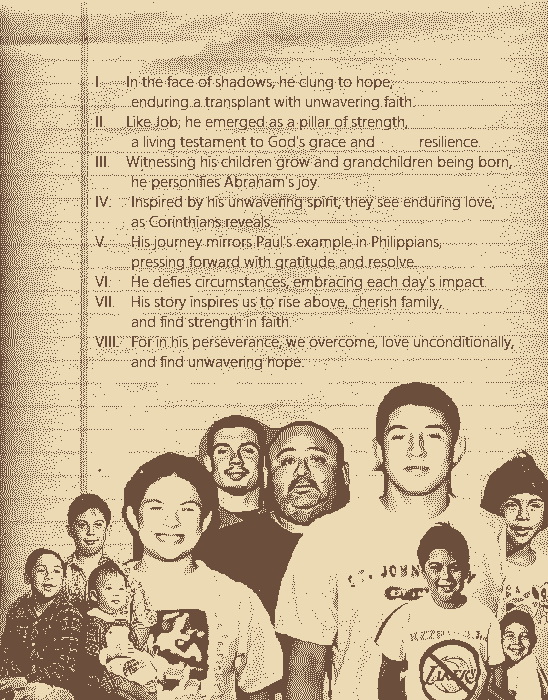 I. In the face of shadows, he clung to hope,
enduring a transplant with unwavering faith.
II. Like Job, he emerged as a pillar of strength,
a living testament to God's grace and resilience.
III. Witnessing his children grow and grandchildren being born,
he personifies Abraham's joy.
IV. Inspired by his unwavering spirit, they see enduring love,
as Corinthians reveals.
V. His journey mirrors Paul's example in Philippians,
pressing forward with gratitude and resolve.
VI. He defies circumstances, embracing each day's impact.
VII. His story inspires us to rise above, cherish family,
and find strength in faith.
VIII. For in his perseverance, we overcome, love unconditionally,
and find unwavering hope.
JOHN
LAKERS